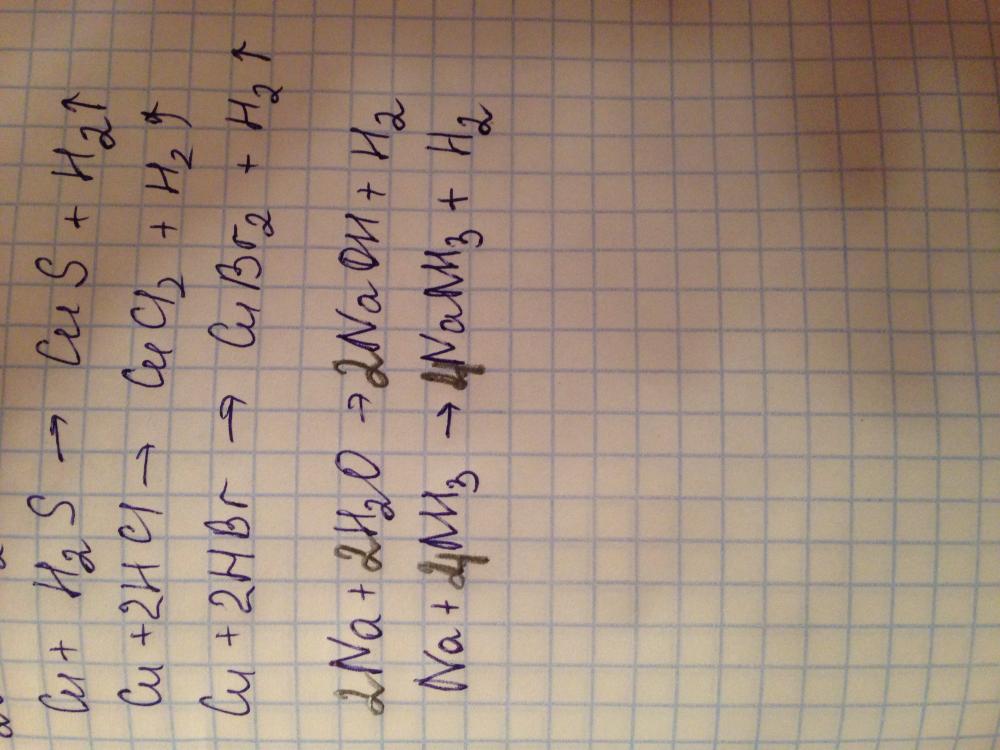 Cu + H₂S → CuS + H₂↑
Cu + 2HCl → CuCl₂ + H₂↑
Cu + 2HBr → CuBr₂ + H₂↑
2Na + 2H₂O → 2NaOH + H₂
Na + 4NH₃ → 4NaNH₃ + H₂